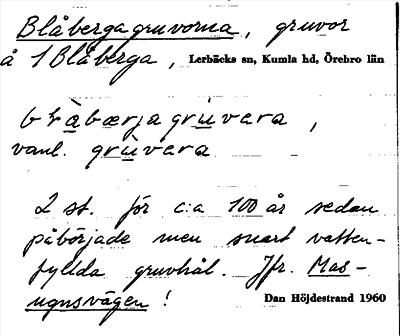 Blåbergagruvorna, gruvor
å 1 Blåberga, Lerbäcks sn, Kumla hd, Örebro län
bràbærjagrùvera,
vanl. grùvera
2 st. för c:a 100 år sedan
påbörjade men snart vatten-
fyllda gruvhål. Jfr. Mas-
ugnsvägen!
Dan Höjdestrand 1960